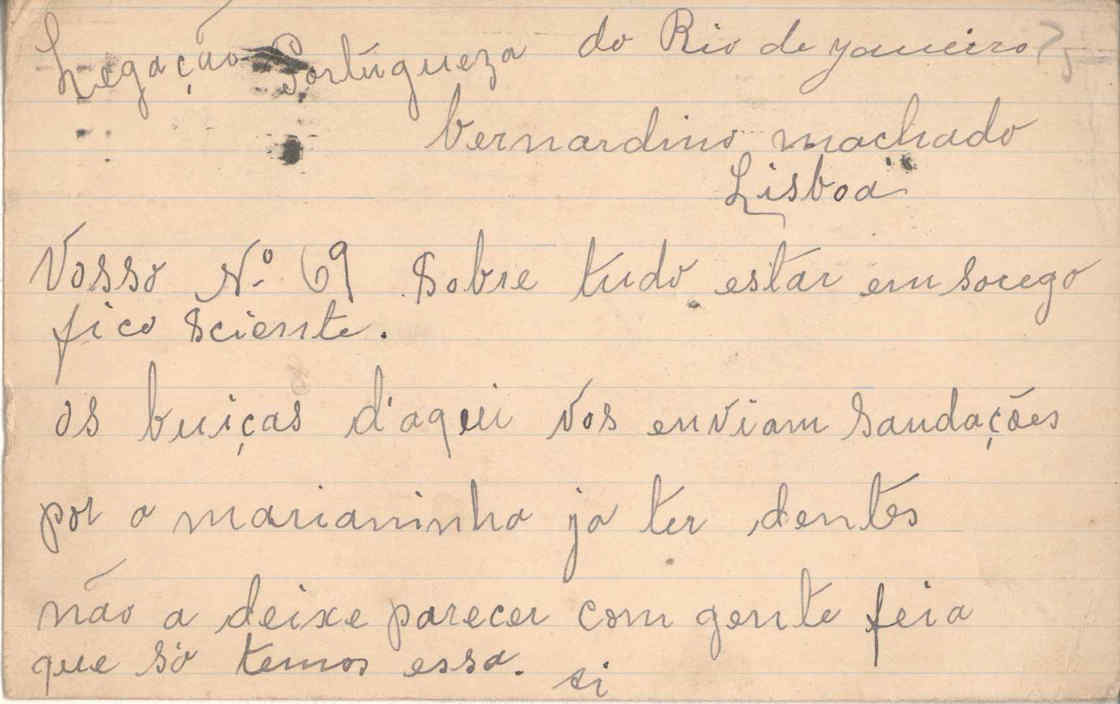 Legação Portúgueza do Rio de yaneiro
bernardino machado
Lisboa
Vosso Nº 69 Sobre tudo estar em socego
fico Sciente.
os buiças d'aqui vos enviam Saudações
por a marianinha ja ter dentes
não a deixe parecer com gente feia
que só temos essa. si